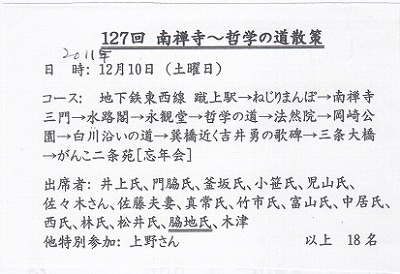 127回 南禅寺～哲学の道散策
2011年
日 時: 12月10日（土曜日）
コース: 地下鉄東西線 蹴上駅→ねじりまんぽ→南禅寺
三門→水路閣→永観堂→哲学の道→法然院→岡崎公
園→白川沿いの道→巽橋近く吉井勇の歌碑→三条大橋
→がんこ二条苑[忘年会]
出席者: 井上氏、門脇氏、釜坂氏、小笹氏、児山氏、
佐々木さん、佐藤夫妻、真常氏、竹市氏、富山氏、中居氏、
西氏、林氏、松井氏、脇地氏、木津
他特別参加: 上野さん 以上 18名